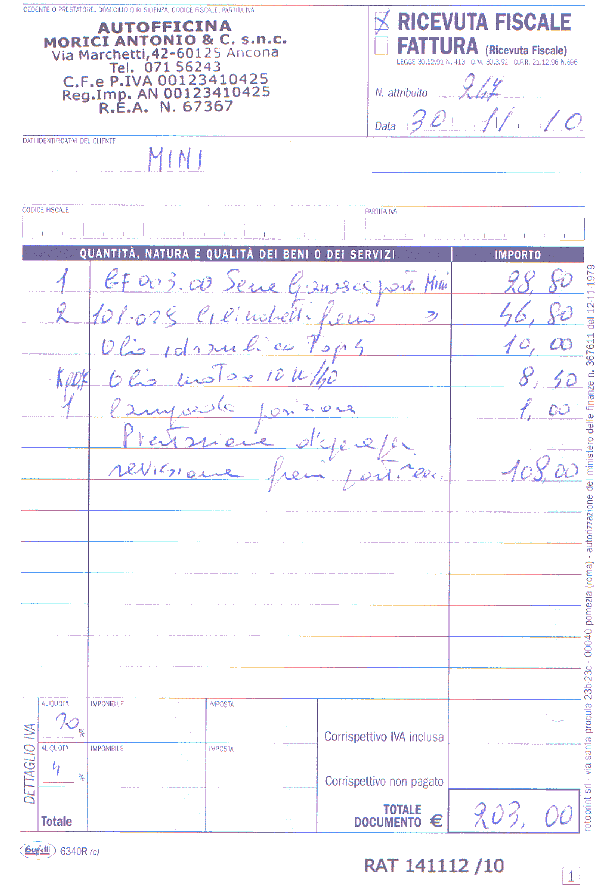 CEDENTE O PRESTATORE, DOMICILIO O RESIDENZA, CODICE FISCALE, PARTITA IVA
AUTOFFICINA
MORICI ANTONIO & C. s.n.c.
Via Marchetti,42-60125 Ancona
Tel. 071 56243
C.F.e P.IVA 00123410425
Reg.Imp. AN 00123410425
R.E.A. N. 67367
X RICEVUTA FISCALE
FATTURA (Ricevuta Fiscale)
LEGGE 30.12.91 N. 413 - D.M. 30.3.92 - D.P.R. 21.12.96 N.696
N. attribuito 247
Data 30 11 10
DATI IDENTIFICATIVI DEL CLIENTE
MINI
CODICE FISCALE
PARTITA IVA
QUANTITÀ, NATURA E QUALITÀ DEI BENI O DEI SERVIZI IMPORTO
1 GF 003.00 Serie Ganasce post Mini 28,80
2 101-025 Cilindretti freno " 46,80
Olio idraulico Top 4 10,00
Olio motore 10W/40 8,40
1 lampada posizione 1,00
Prestazione d'opera per
revisione freni posteriori 108,00
DETTAGLIO IVA
ALIQUOTA IMPONIBILE IMPOSTA
20 %
Corrispettivo IVA inclusa
ALIQUOTA IMPONIBILE IMPOSTA
4 %
Corrispettivo non pagato
Totale
TOTALE DOCUMENTO € 203,00
Buffetti 6340R (c)
RAT 141112 /10
1
rotoprint srl - via santa procula 23b 23c - 00040 pomezia (roma) - autorizzazione del ministero delle finanze n. 367611 del 12-11-1979